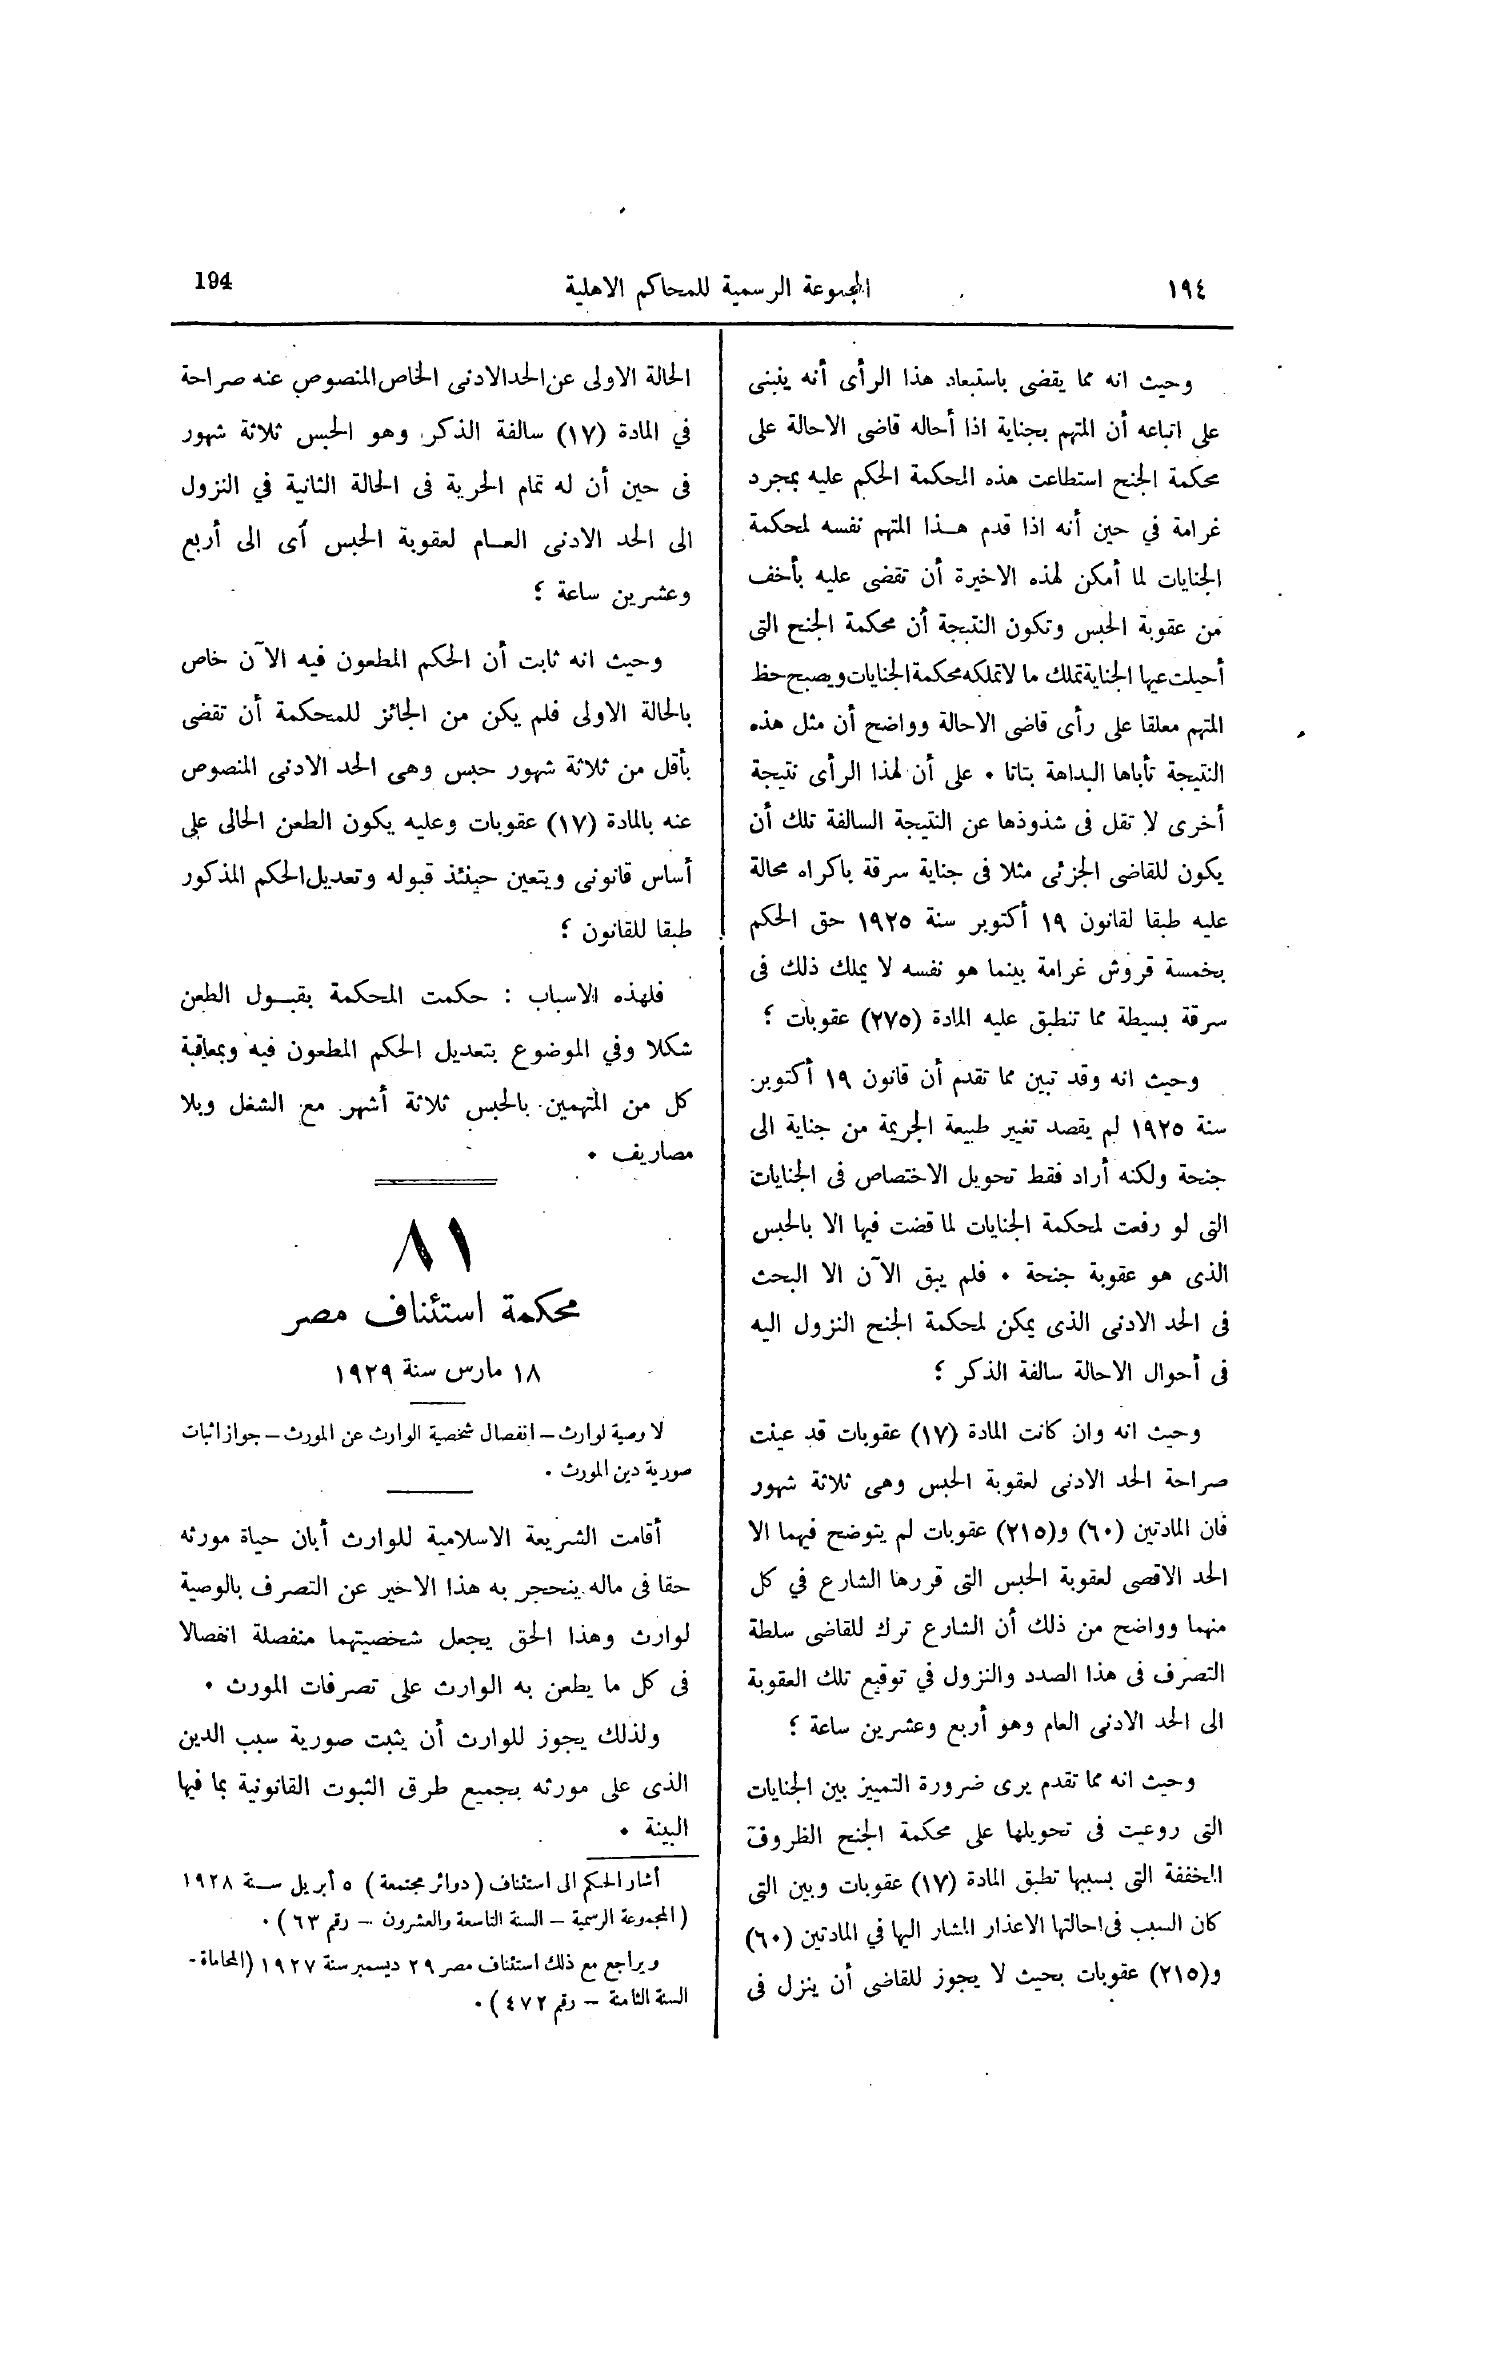 ١٩٤
المجموعة الرسمية للمحاكم الاهلية
194
وحيث انه مما يقضى باستبعاد هذا الرأى أنه ينبنى
على اتباعه أن المتهم بجناية اذا أحاله قاضى الاحالة على
محكمة الجنح استطاعت هذه المحكمة الحكم عليه بمجرد
غرامة في حين أنه اذا قدم هـذا المتهم نفسه لمحكمة
الجنايات لما أمكن لهذه الاخيرة أن تقضى عليه بأخف
من عقوبة الحبس وتكون النتيجة أن محكمة الجنح التى
أحيلت عيها الجناية تملك ما لا تملكه محكمة الجنايات ويصبح حظ
المتهم معلقا على رأى قاضى الاحالة وواضح أن مثل هذه
النتيجة تأباها البداهة بتاتا ٠ على أن لهذا الرأى نتيجة
أخرى لا تقل فى شذوذها عن النتيجة السالفة تلك أن
يكون للقاضى الجزئى مثلا فى جناية سرقة باكراه محالة
عليه طبقا لقانون ١٩ أكتوبر سنة ١٩٢٥ حق الحكم
بخمسة قروش غرامة بينما هو نفسه لا يملك ذلك فى
سرقة بسيطة مما تنطبق عليه المادة (٢٧٥) عقوبات ؟
وحيث انه وقد تبين مما تقدم أن قانون ١٩ أكتوبر
سنة ١٩٢٥ لم يقصد تغيير طبيعة الجريمة من جناية الى
جنحة ولكنه أراد فقط تحويل الاختصاص فى الجنايات
التى لو رفعت لمحكمة الجنايات لما قضت فيها الا بالحبس
الذى هو عقوبة جنحة ٠ فلم يبق الآن الا البحث
فى الحد الادنى الذى يمكن لمحكمة الجنح النزول اليه
فى أحوال الاحالة سالفة الذكر ؟
وحيث انه وان كانت المادة (١٧) عقوبات قد عينت
صراحة الحد الادنى لعقوبة الحبس وهى ثلاثة شهور
فان المادتين (٦٠) و(٢١٥) عقوبات لم يتوضح فيهما الا
الحد الاقصى لعقوبة الحبس التى قررها الشارع في كل
منهما وواضح من ذلك أن الشارع ترك للقاضى سلطة
التصرف فى هذا الصدد والنزول في توقيع تلك العقوبة
الى الحد الادنى العام وهو أربع وعشرين ساعة ؟
وحيث انه مما تقدم يرى ضرورة التمييز بين الجنايات
التى روعيت فى تحويلها على محكمة الجنح الظروف
المخففة التى بسببها تطبق المادة (١٧) عقوبات وبين التى
كان السبب فى احالتها الاعذار المشار اليها في المادتين (٦٠)
و(٢١٥) عقوبات بحيث لا يجوز للقاضى أن ينزل فى
الحالة الاولى عن الحد الادنى الخاص المنصوص عنه صراحة
في المادة (١٧) سالفة الذكر وهو الحبس ثلاثة شهور
فى حين أن له تمام الحرية فى الحالة الثانية في النزول
الى الحد الادنى العـام لعقوبة الحبس أى الى أربع
وعشرين ساعة ؟
وحيث انه ثابت أن الحكم المطعون فيه الآن خاص
بالحالة الاولى فلم يكن من الجائز للمحكمة أن تقضى
بأقل من ثلاثة شهور حبس وهى الحد الادنى المنصوص
عنه بالمادة (١٧) عقوبات وعليه يكون الطعن الحالى على
أساس قانونى ويتعين حينئذ قبوله وتعديل الحكم المذكور
طبقا للقانون ؟
فلهذه الاسباب : حكمت المحكمة بقبـول الطعن
شكلا وفي الموضوع بتعديل الحكم المطعون فيه وبمعاقبة
كل من المتهمين بالحبس ثلاثة أشهر مع الشغل وبلا
مصاريف ٠
٨١
محكمة استئناف مصر
١٨ مارس سنة ١٩٢٩
لا وصية لوارث – انفصال شخصية الوارث عن المورث – جواز اثبات
صورية دين المورث ٠
أقامت الشريعة الاسلامية للوارث أبان حياة مورثه
حقا فى ماله ينحجر به هذا الاخير عن التصرف بالوصية
لوارث وهذا الحق يجعل شخصيتهما منفصلة انفصالا
فى كل ما يطعن به الوارث على تصرفات المورث ٠
ولذلك يجوز للوارث أن يثبت صورية سبب الدين
الذى على مورثه بجميع طرق الثبوت القانونية بما فيها
البينة ٠
أشار الحكم الى استئناف (دوائر مجتمعة) ٥ أبريل سـنة ١٩٢٨
(المجموعة الرسمية – السنة التاسعة والعشرون – رقم ٦٣) ٠
ويراجع مع ذلك استئناف مصر ٢٩ ديسمبر سنة ١٩٢٧ (المحاماة -
السنة الثامنة – رقم ٤٧٢) ٠